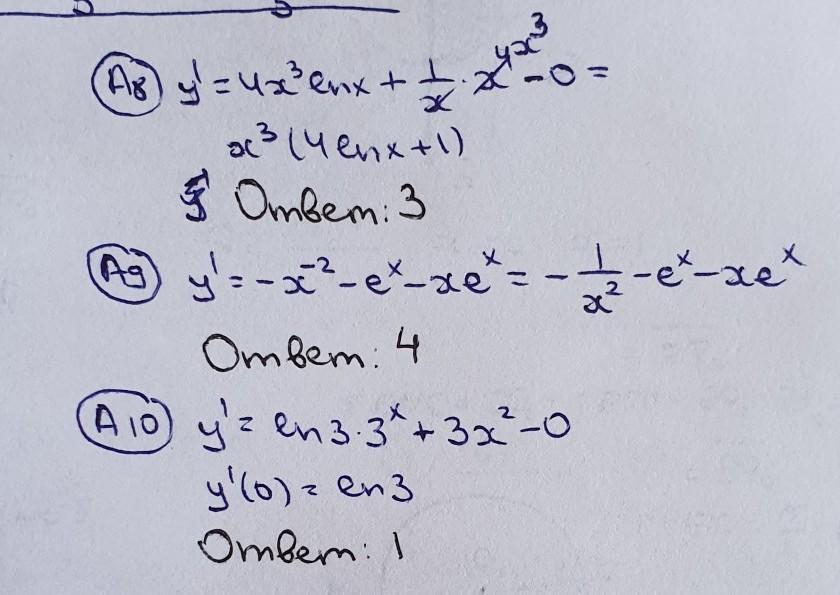 A8 y' = 4x³ lnx + 1/x · x⁴ˣ³ - 0 =
x³ (4 lnx + 1)
Ответ: 3
A9 y' = -x⁻² - eˣ - xeˣ = - 1/x² - eˣ - xeˣ
Ответ: 4
A10 y' = ln3 · 3ˣ + 3x² - 0
y'(0) = ln3
Ответ: 1